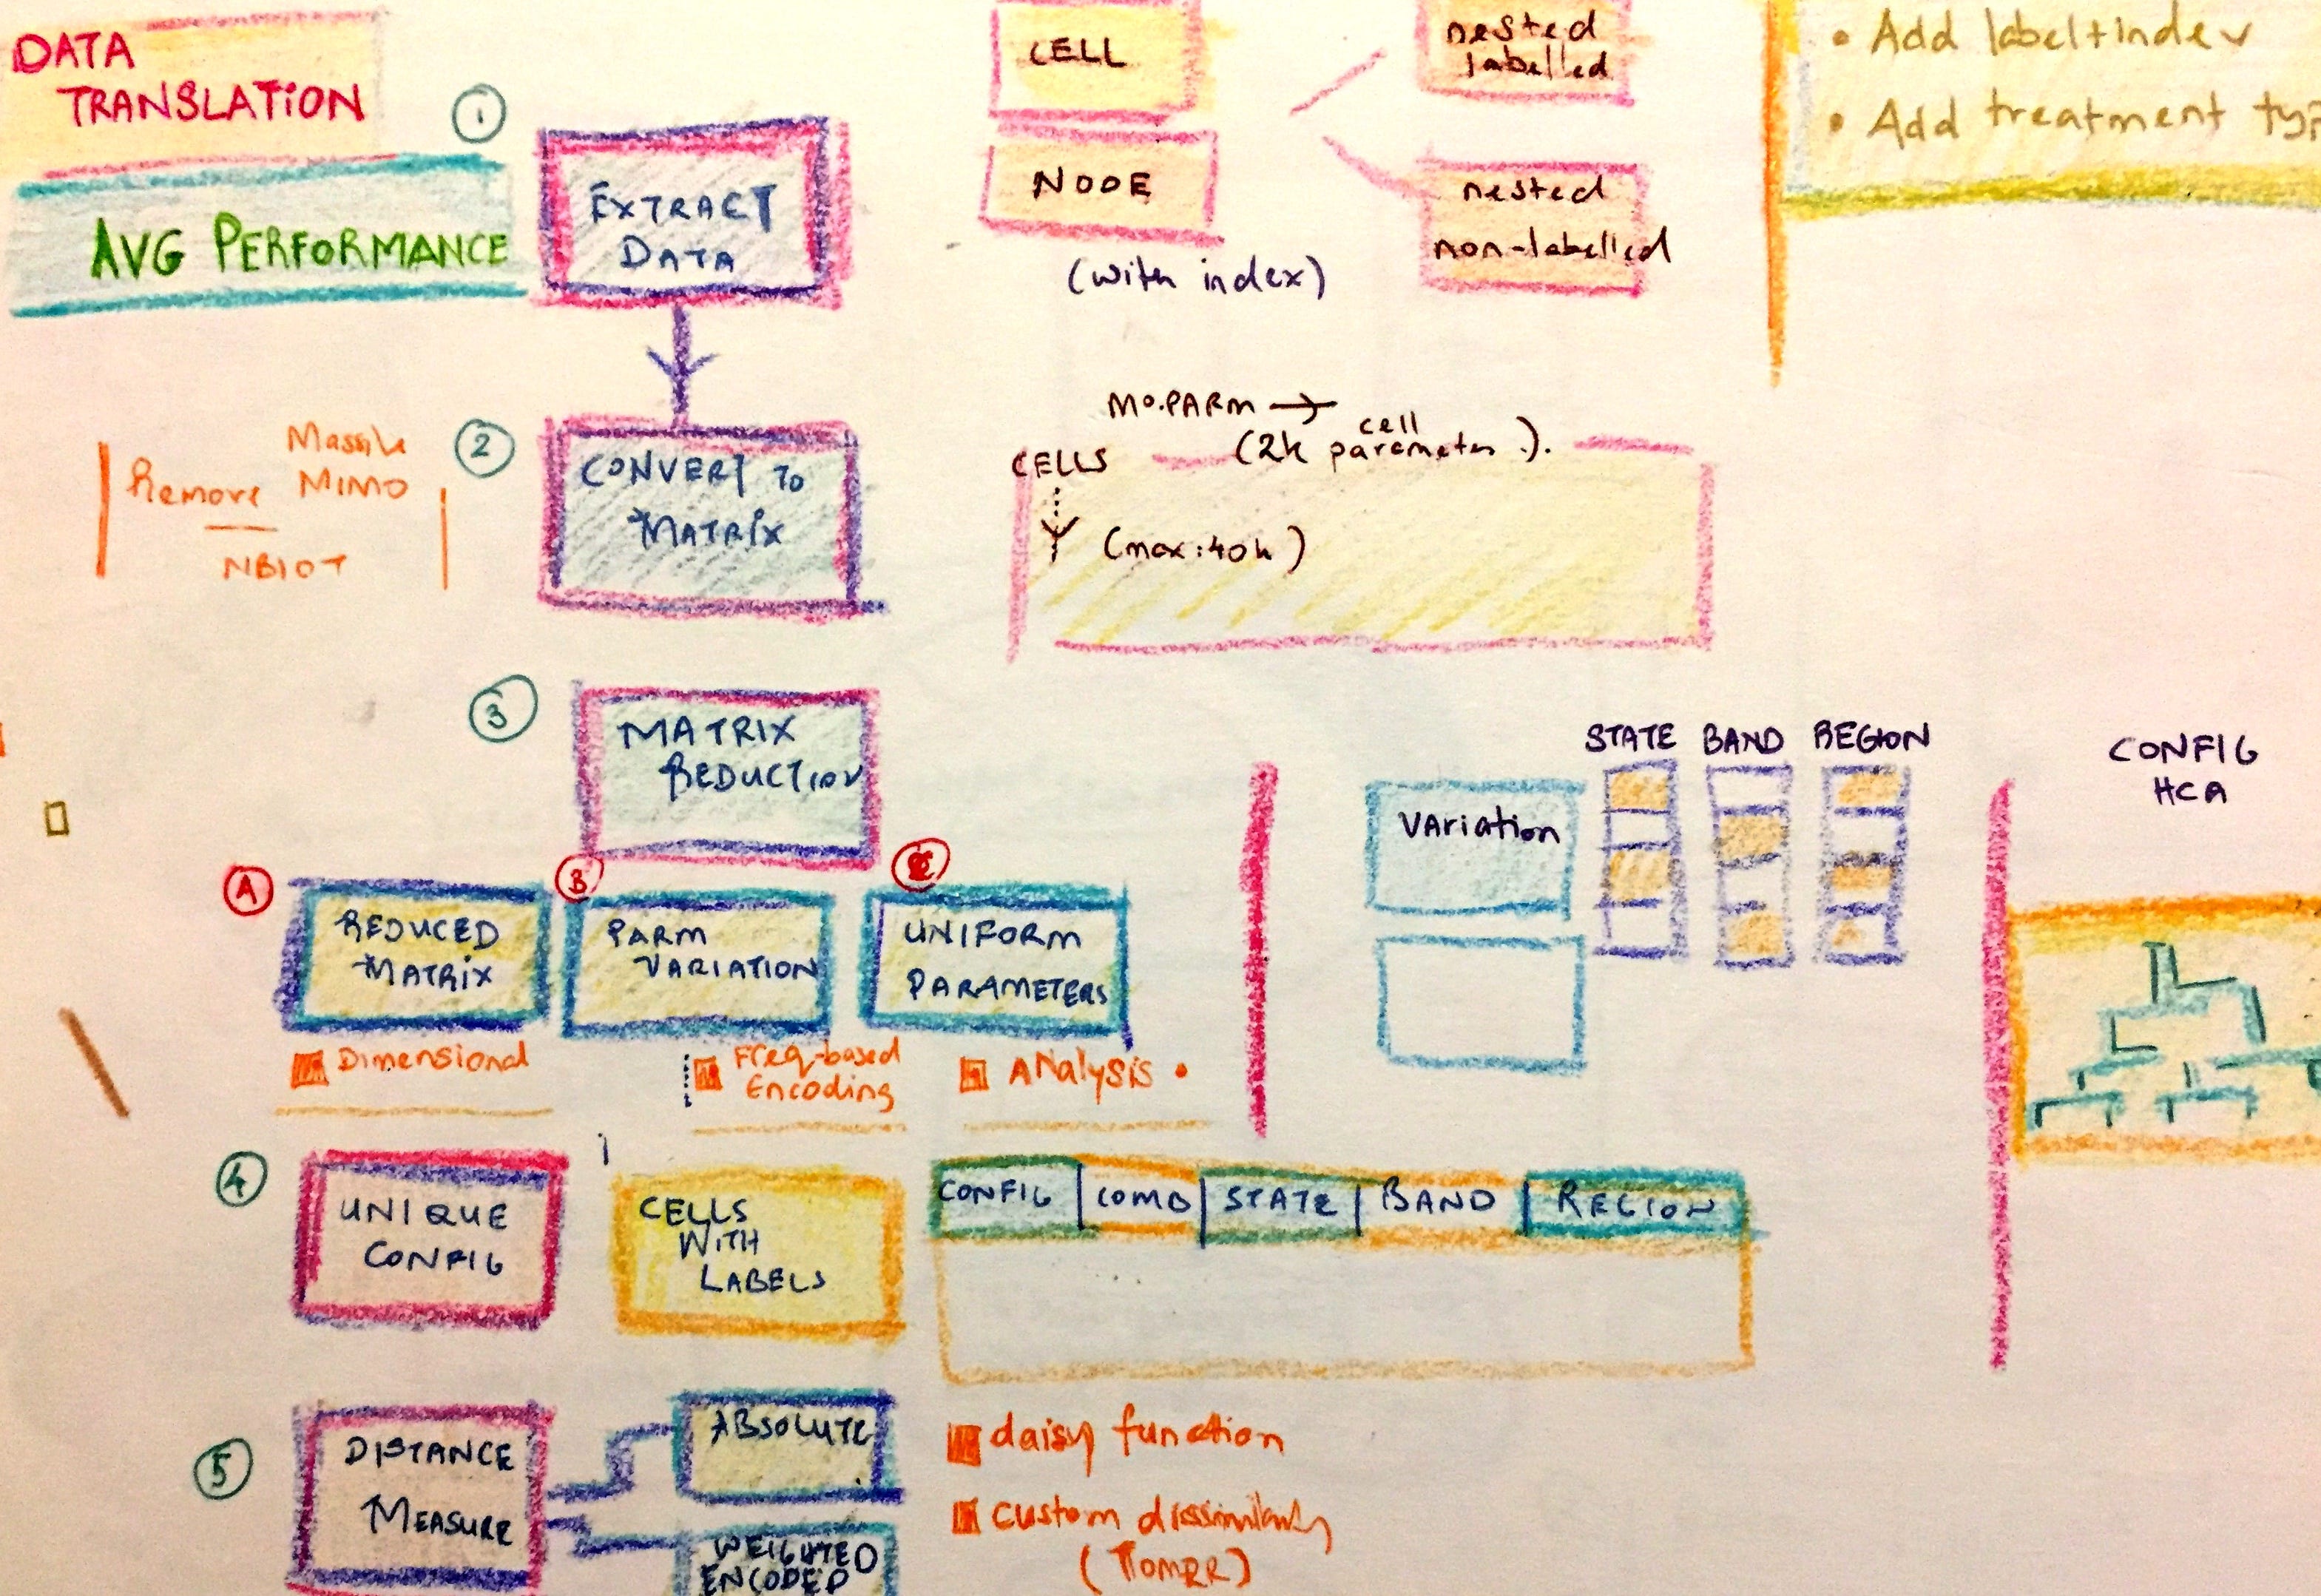 DATA
TRANSLATION
AVG PERFORMANCE
1
EXTRACT
DATA
CELL
NODE
(with index)
nested
labelled
nested
non-labelled
• Add label+index
• Add treatment
2
CONVERT TO
MATRIX
Remove
Massive
MIMO
NBIOT
MO.PARM →
cell
(2k parameter).
CELLS
(max:40k)
3
MATRIX
REDUCTION
A
REDUCED
MATRIX
Dimensional
B
PARM
VARIATION
Freq-based
Encoding
UNIFORM
PARAMETERS
Analysis •
STATE BAND REGION
Variation
CONFIG
HCA
4
UNIQUE
CONFIG
CELLS
WITH
LABELS
CONFIG | COMB | STATE | BAND | REGION
5
DISTANCE
MEASURE
ABSOLUTE
WEIGHTED
ENCODED
daisy function
custom dissimilarity